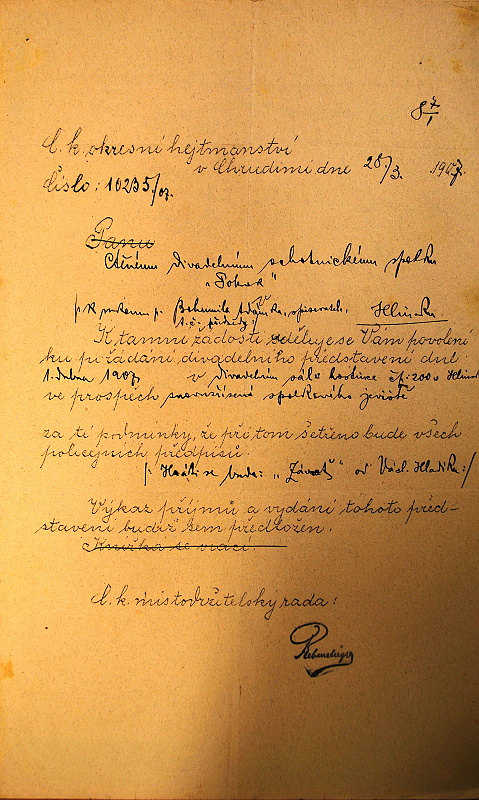 8 7/1
C. k. okresní hejtmanství
v Chrudimi dne 28/3. 1907.
Číslo: 10235/07.
Panu
Ctěnému divadelnímu ochotnickému spolku
"Pokrok"
/: K rukoum p. Bohumila Adámka, spisovatele,
t. č. předsedy Hlinsko.
K tamní žádosti uděluje se Vám povolení
ku pořádání divadelního představení dne
1. dubna 1907 v divadelním sále hostince čp. 200 v Hlinsku
ve prospěch spolkového jeviště
za té podmínky, že při tom šetřeno bude všech
policejních předpisů.
/: Hráti se bude: "Závrať" od Václ. Hladíka :/
Výkaz příjmů a vydání tohoto před-
stavení budiž sem předložen.
Knížka se vrací.
C. k. místodržitelský rada: